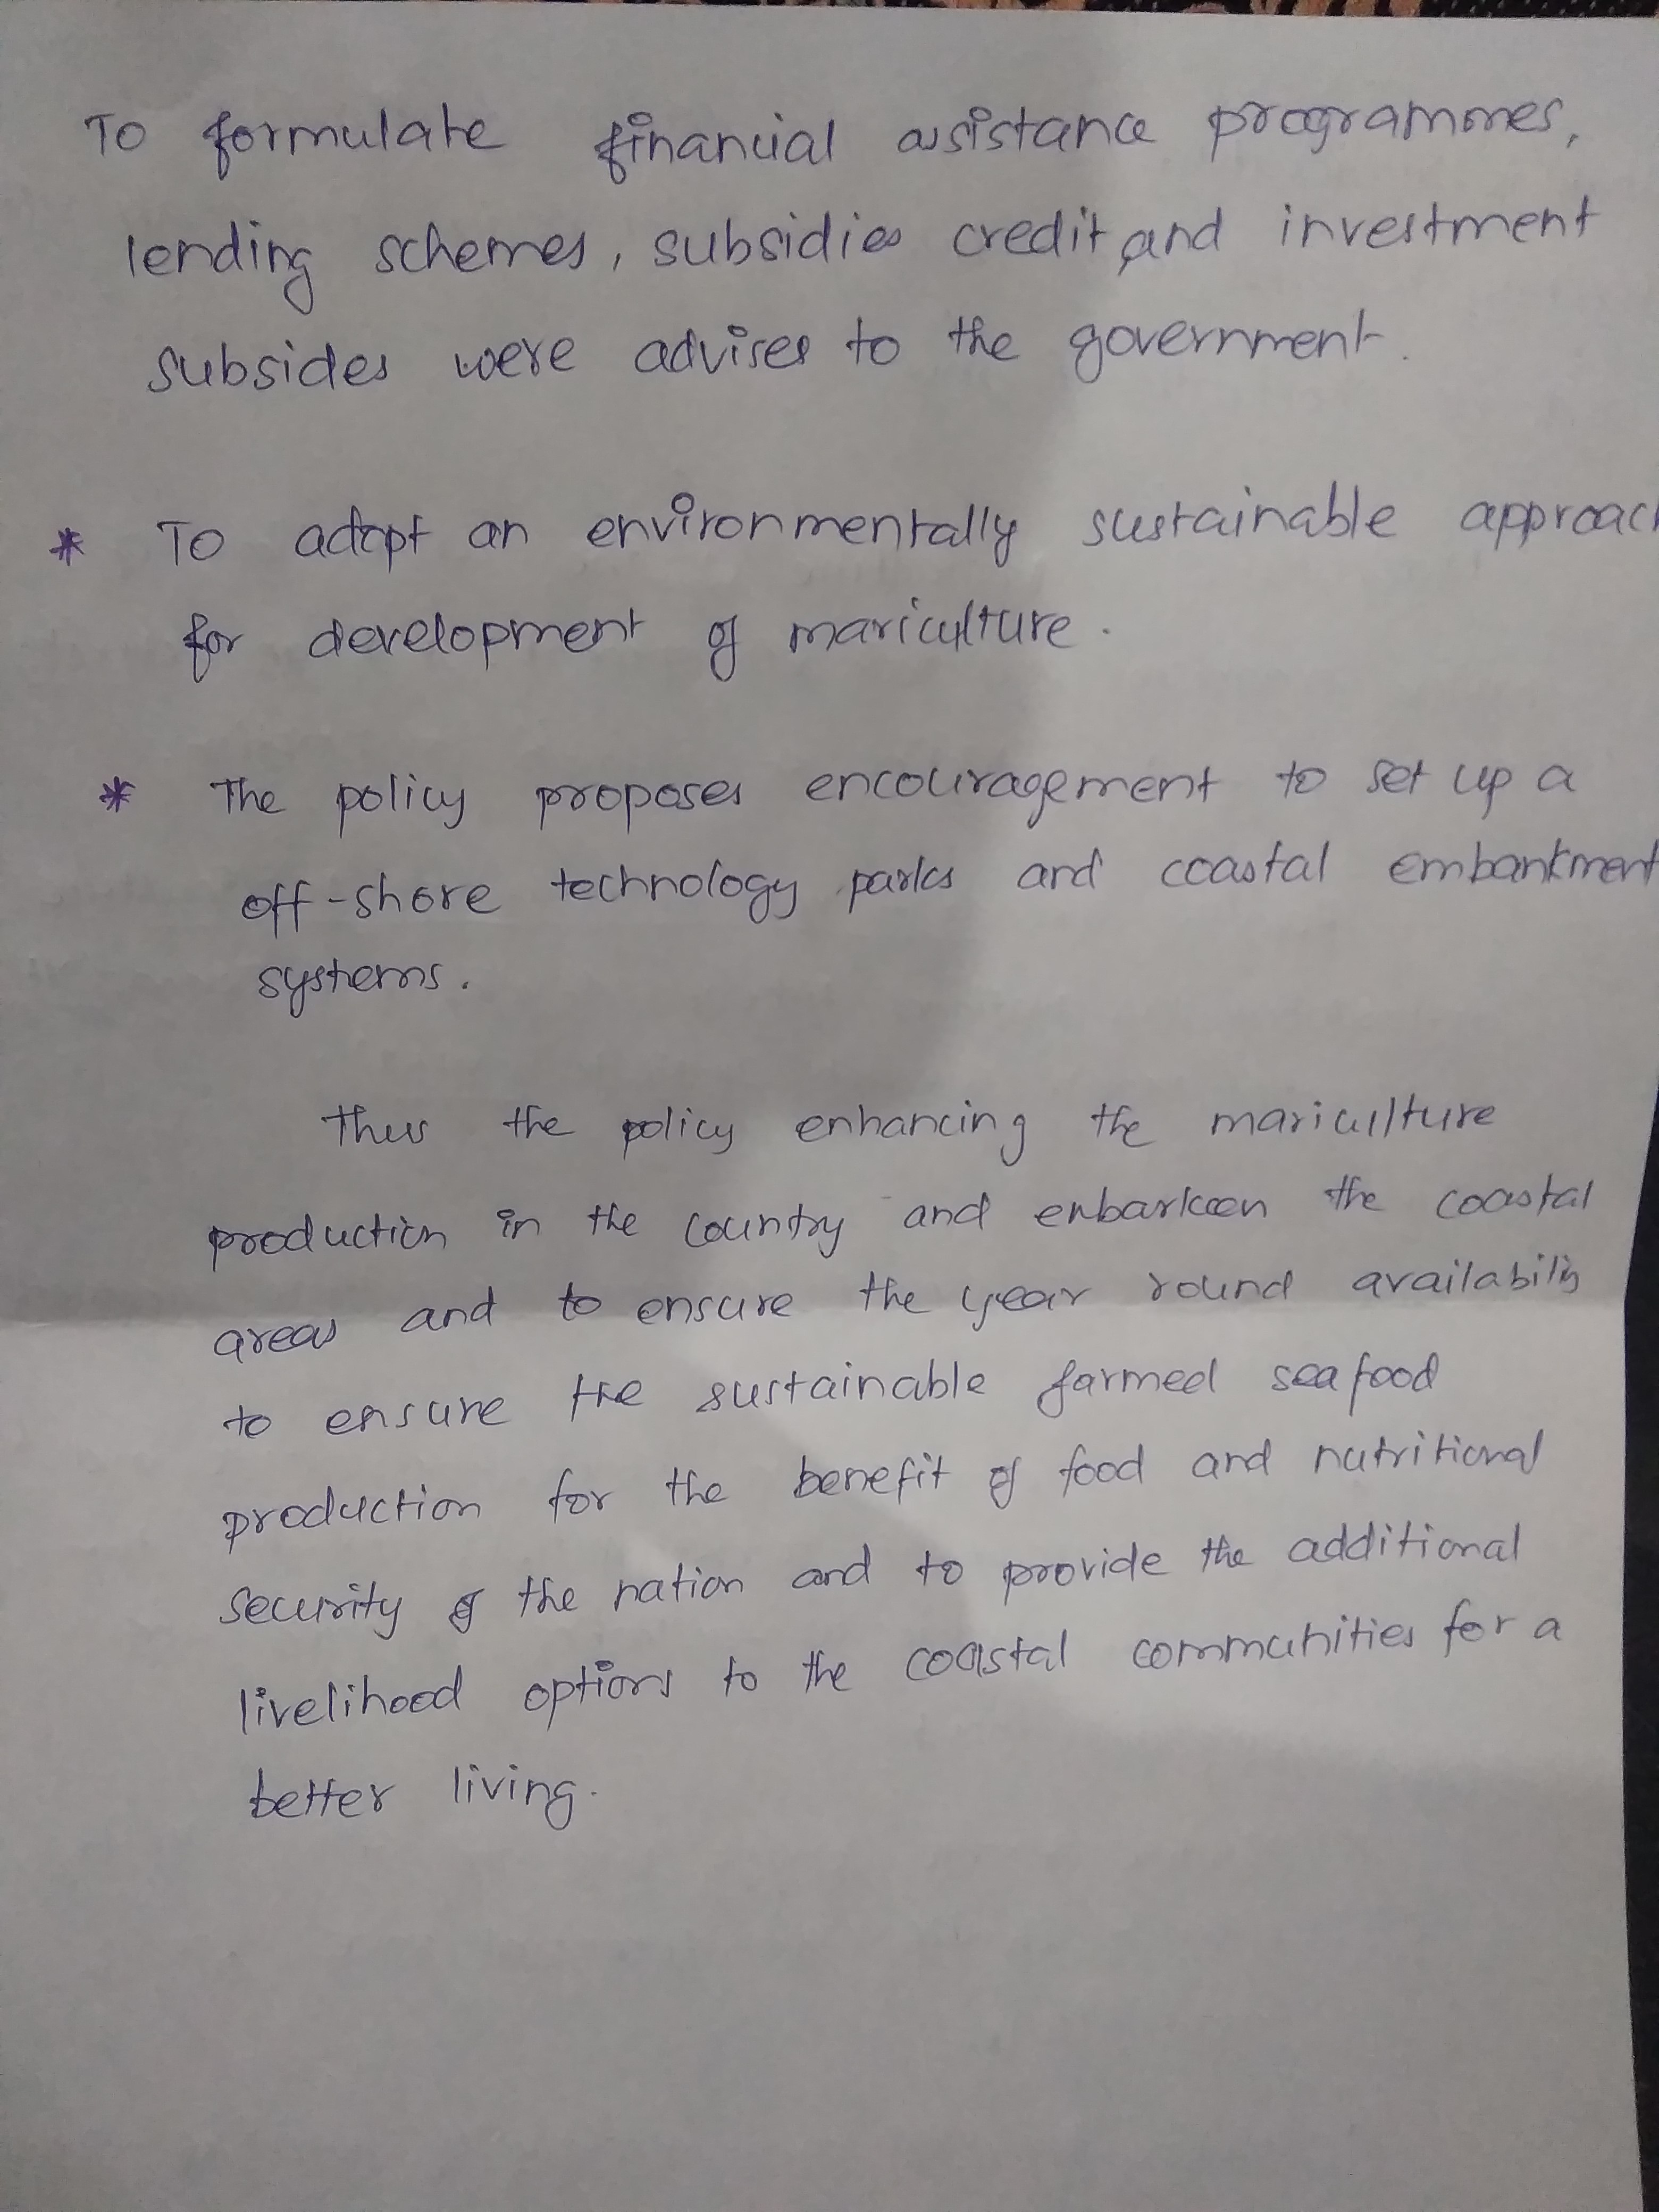 To formulate financial assistance programmes,
lending schemes, subsidies credit and investment
subsides were advises to the government.
* To adopt an environmentally sustainable approach
for development of mariculture.
* The policy proposes encouragement to set up a
off-shore technology parks and coastal embankment
systems.
Thus the policy enhancing the mariculture
production in the country and the coastal
areas and to ensure the year round availability
to ensure the sustainable farmed seafood
production for the benefit of food and nutritional
security of the nation and to provide the additional
livelihood options to the coastal communities for a
better living.